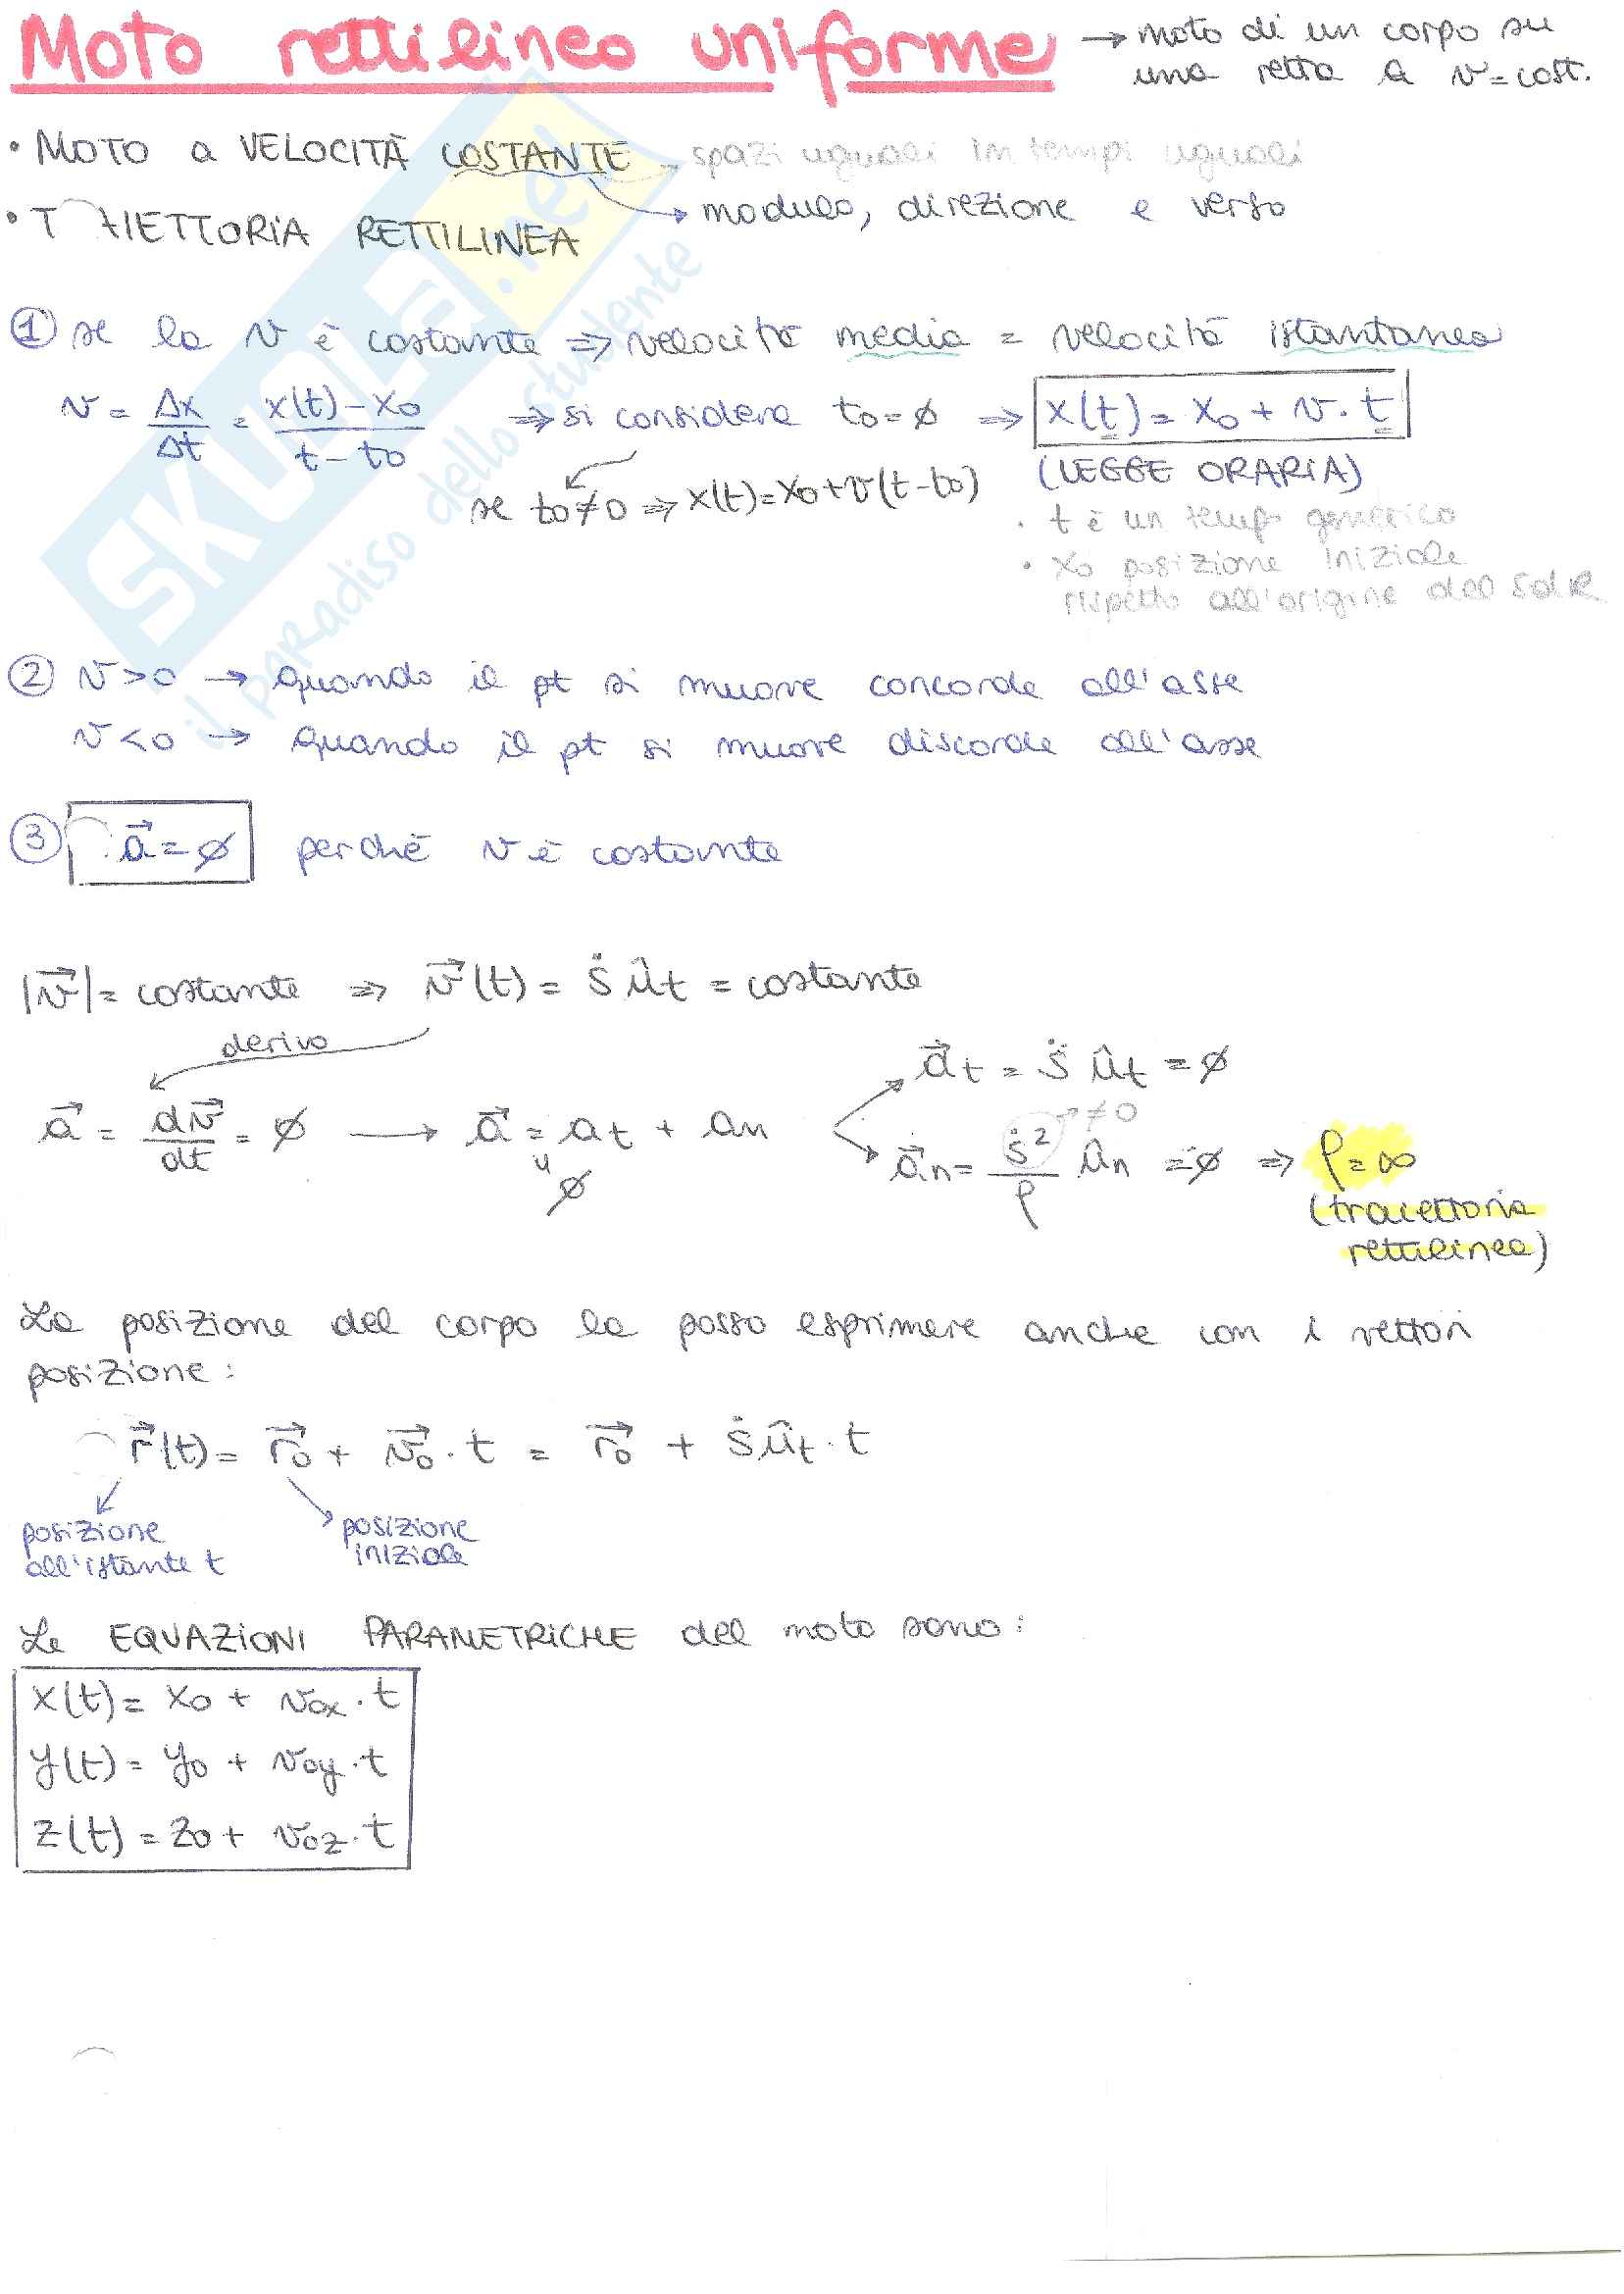 Moto rettilineo uniforme → moto di un corpo su
una retta a v = cost.
• MOTO a VELOCITÀ COSTANTE → spazi uguali in tempi uguali
→ modulo, direzione e verso
• T AIETTORIA RETTILINEA
① se la v è costante ⇒ velocità media = velocità istantanea
v = Δx/Δt = (x(t) - x₀)/(t - t₀) ⇒ si considera t₀ = ∅ ⇒ x(t) = x₀ + v · t
(LEGGE ORARIA)
se t₀ ≠ 0 ⇒ x(t) = x₀ + v(t - t₀)
· t è un temp generico
• x₀ posizione iniziale
rispetto all'origine del SdR
② v > 0 → quando il pt si muove concorde all'asse
v < 0 → quando il pt si muove discorde all'asse
③ a⃗ = ∅ perché v è costante
|v⃗| = costante ⇒ v⃗(t) = ṡ ût = costante
derivo
a⃗ = dv⃗/dt = ∅ → a⃗ = at + an
∅
a⃗t = s̈ ût = ∅
a⃗n = ṡ²/ρ ûn = ∅ ⇒ ρ = ∞
→ ≠ 0
(traiettoria
rettilinea)
La posizione del corpo la posso esprimere anche con i vettori
posizione:
r⃗(t) = r⃗₀ + v⃗₀ · t = r⃗₀ + ṡ ût · t
posizione
all'istante t
posizione
iniziale
Le EQUAZIONI PARAMETRICHE del moto sono:
x(t) = x₀ + v₀x · t
y(t) = y₀ + v₀y · t
z(t) = z₀ + v₀z · t
SKUOLA.net
il paradiso dello studente